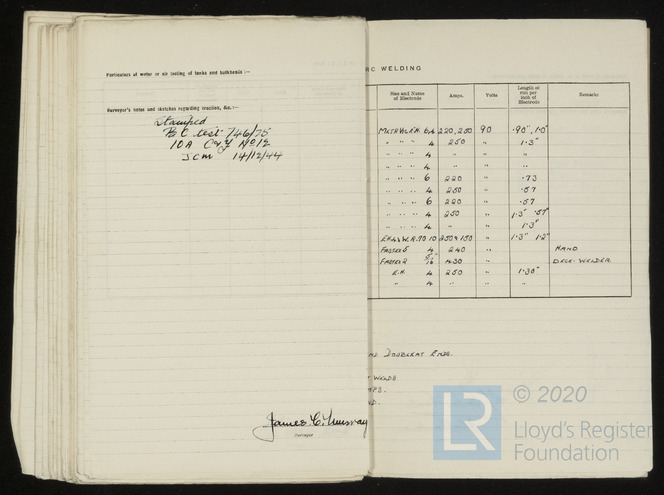 Particulars of water or air testing of tanks and bulkheads :—
Surveyor's notes and sketches regarding erection, &c. :—
Stamped
B.C. test 746/75
10A Cry No 12
JCM 14/12/44
James C. Murray
Surveyor
RC WELDING
Size and Name of Electrode Amps. Volts Length of run per inch of Electrode Remarks
6,4 220,250 90 .90", 1.0"
" " " 4 250 " 1.3"
" " " 4 " " "
" " " 4 " " "
" " " 6 220 " .73
" " " 4 250 " .57
" " " 6 220 " .57
" " " 4 250 " 1.3" .57"
" " " 4 " " 1.3"
10 250 & 150 " 1.3" 1.2"
Fastex 5 4 240 " HAND
Fastex 2 5/16" 430 " DECK-WELDER
E.H. 4 250 " 1.38"
" 4 " " "
DOUBLERS ENDS.
WELDS
© 2020
LR
Lloyd's Register
Foundation